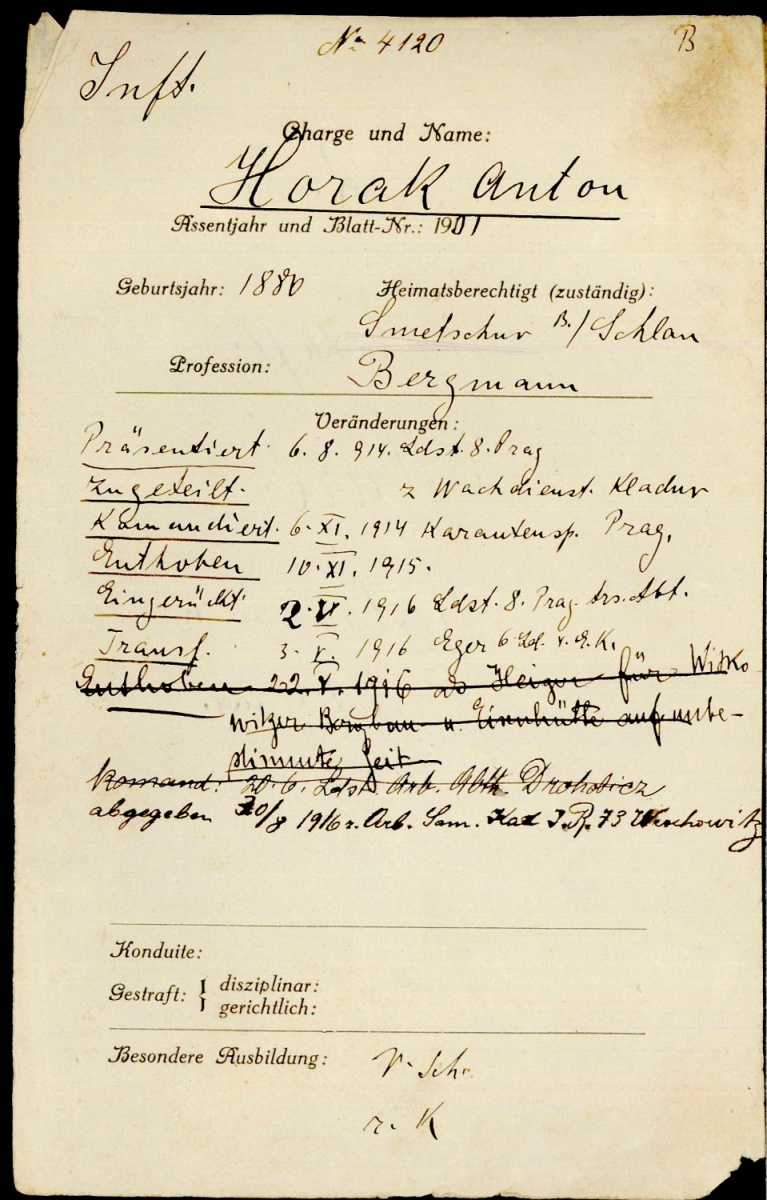 № 4120 B
Inft.
Charge und Name:
Horak Anton
Assentjahr und Blatt-Nr.: 1901
Geburtsjahr: 1880 Heimatsberechtigt (zuständig):
Smetschno B./Schlan
Profession: Bergmann
Veränderungen:
Präsentiert 6. 8. 914. Ldst. 8. Prag
Zugeteilt. z Wachdienst. Kladno
Komandiert. 6. XI. 1914 Karantensp. Prag,
Enthoben 10. XI. 1915.
Eingerückt 2. V. 1916 Ldst. 8. Prag. Ars. Abt.
Transf. 3. V. 1916 Eger 6 Ld. v. E. K.
Enthoben 22. V. 1916 als Heizer für Witko
witzer Bergbau u. Eisenhütte auf unbe-
stimmte Zeit
Komand. 20. 6. Ldst. Arb. Abth. Drohobicz
abgegeben 30/8 1916 z. Arb. Sam. Kad I.R. 73 Wrschowitz
Konduite:
Gestraft: { disziplinar:
gerichtlich:
Besondere Ausbildung: V. Sch.
r. K